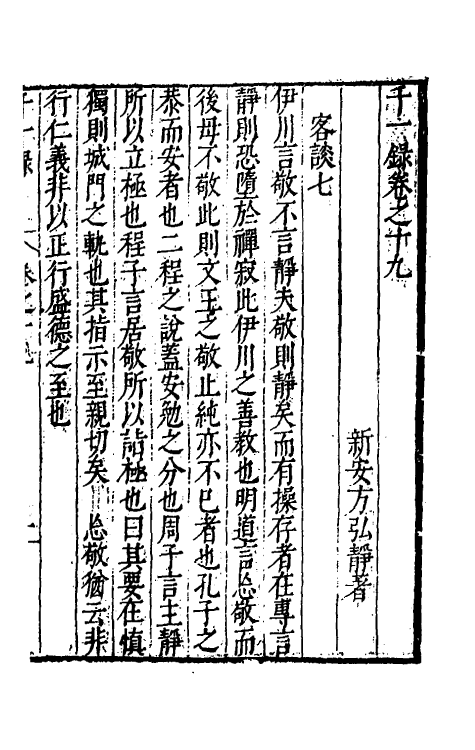 千一錄卷之十九
新安方弘靜著
客談七
伊川言敬不言靜夫敬則靜矣而有操存者在專言
靜則恐墮於禪寂此伊川之善教也明道言忘敬而
後毋不敬此則文王之敬止純亦不已者也孔子之
恭而安者也二程之說蓋安勉之分也周子言主靜
所以立極也程子言居敬所以詣極也曰其要在慎
獨則城門之軌也其指示至親切矣 忘敬猶云非
行仁義非以正行盛德之至也
千一錄 卷之十九 一